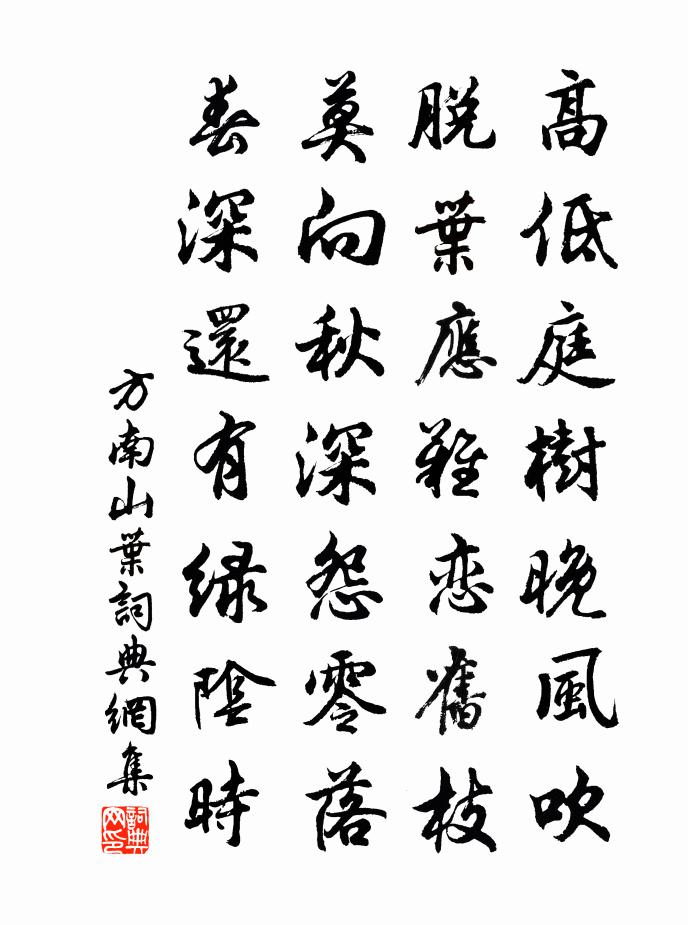 高低庭樹晚風吹
脱葉應難恋舊枝
莫向秋深怨零落
春深還有緑陰時
方南山葉詞典網集
詞典网印